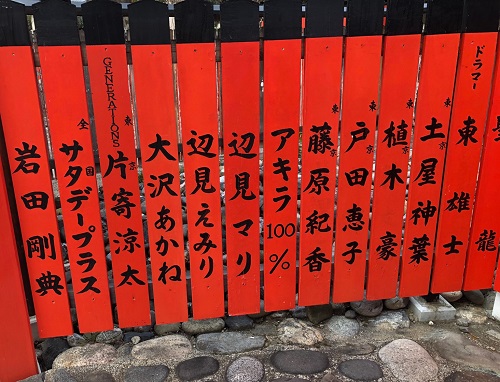 龍
ドラマー 東雄士
東京 土屋神葉
東京 植木豪
東京 戸田恵子
東京 藤原紀香
アキラ100%
辺見マリ
辺見えみり
大沢あかね
東京 GENERATIONS 片寄涼太
全国 サタデープラス
岩田剛典